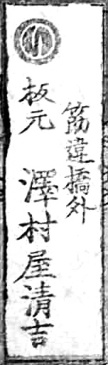 筋違橋外
板元 澤村屋清吉